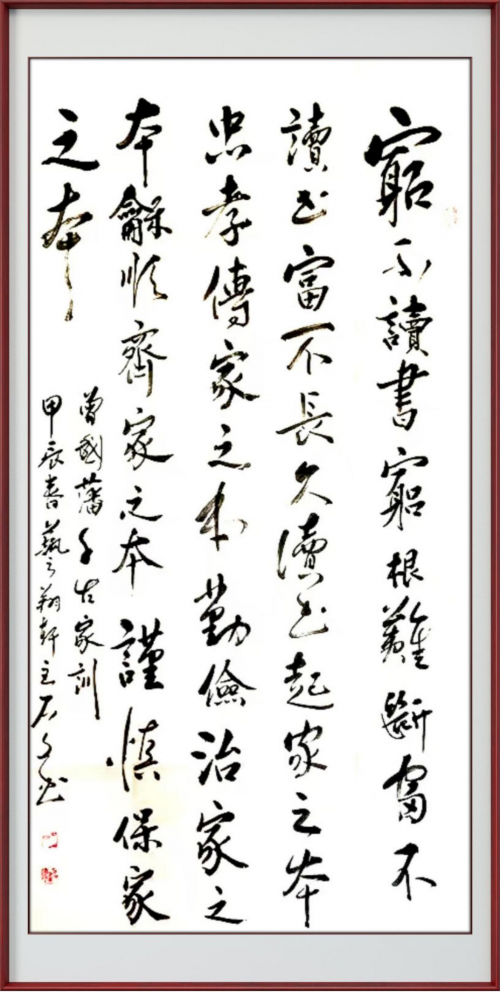 窮不讀書窮根難斷富不
讀書富不長久讀書起家之本
忠孝傳家之本勤儉治家之
本龢順齊家之本謹慎保家
之本
曾國藩千古家訓
甲辰春藝之翔軒主石文書